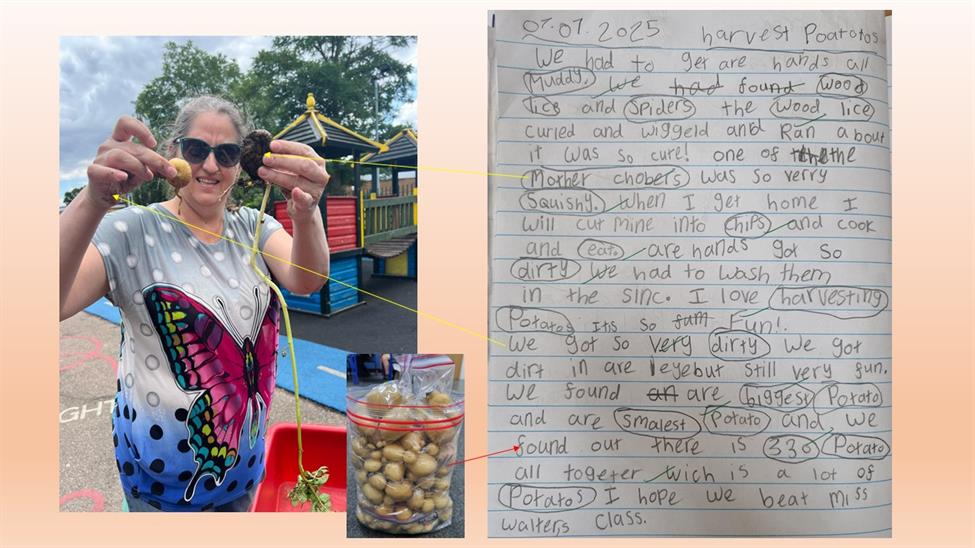 07.07.2025 harvest Poatotos
We had to get are hands all
Muddy. We had found wood
lice and Spiders the wood lice
curled and wiggeld and Ran about
it was so cute! one of the
Mother chobers was so verry
Squishy. When I get home I
will cut mine into chips and cook
and eat. are hands got so
dirty we had to wash them
in the sinc. I love harvesting
Potatos its so fun!.
We got so very dirty we got
dirt in are leye but still very fun.
We found an are biggest Potato
and are smalest Potato and we
found out there is 330 Potato
all togeter wich is a lot of
Potatos I hope we beat miss
walters class.
GHT